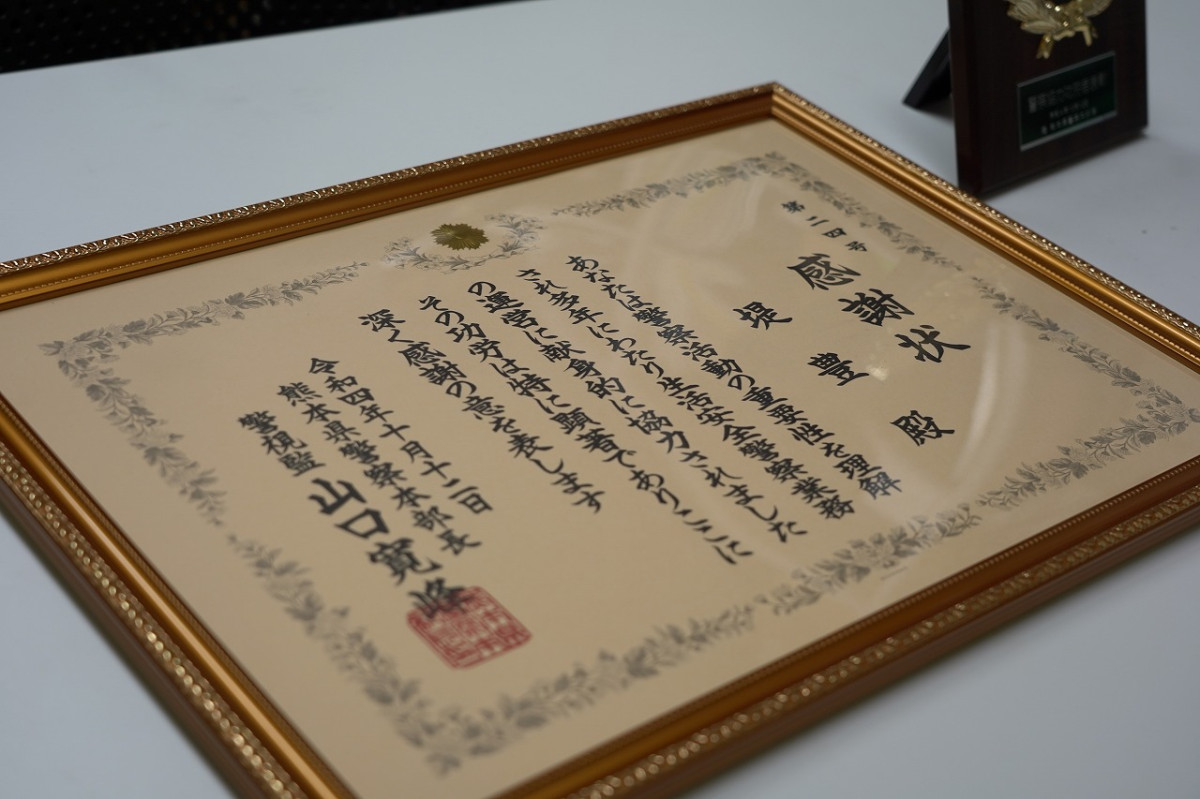 第二四号
感謝状
堤豊殿
あなたは警察活動の重要性を理解
され多年にわたり生活安全警察業務
の運営に献身的に協力されました
その功労は特に顕著でありここに
深く感謝の意を表します
令和四年十月十二日
熊本県警察本部長
警視監 山口寛峰